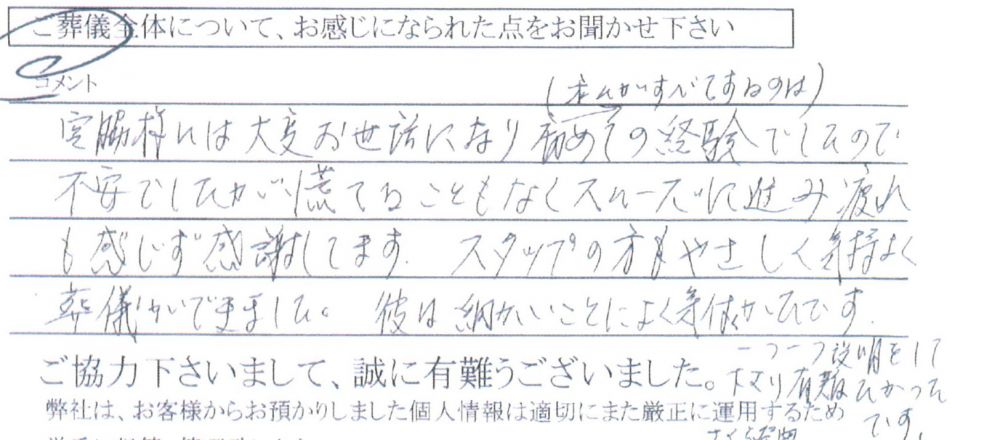 ご葬儀全体について、お感じになられた点をお聞かせ下さい
コメント
(私がすべてするのは)
宮脇様には大変お世話になり初めての経験でしたので
不安でしたが慌てることもなくスムーズに進み疲れ
も感じず感謝してます。スタッフの方もやさしく気持よく
葬儀ができました。彼は細かいことによく気付かれです。
一つ一つ説明をして
下さり有難たかった
です。
ご協力下さいまして、誠に有難うございました。
弊社は、お客様からお預かりしました個人情報は適切にまた厳正に運用するため